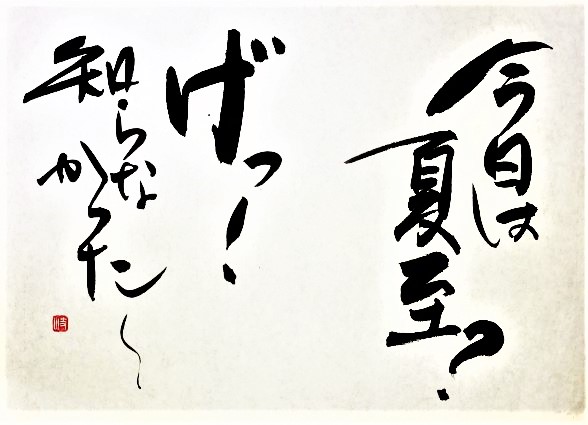 今日は
夏至っ?
げっ!
知らな
かった〜